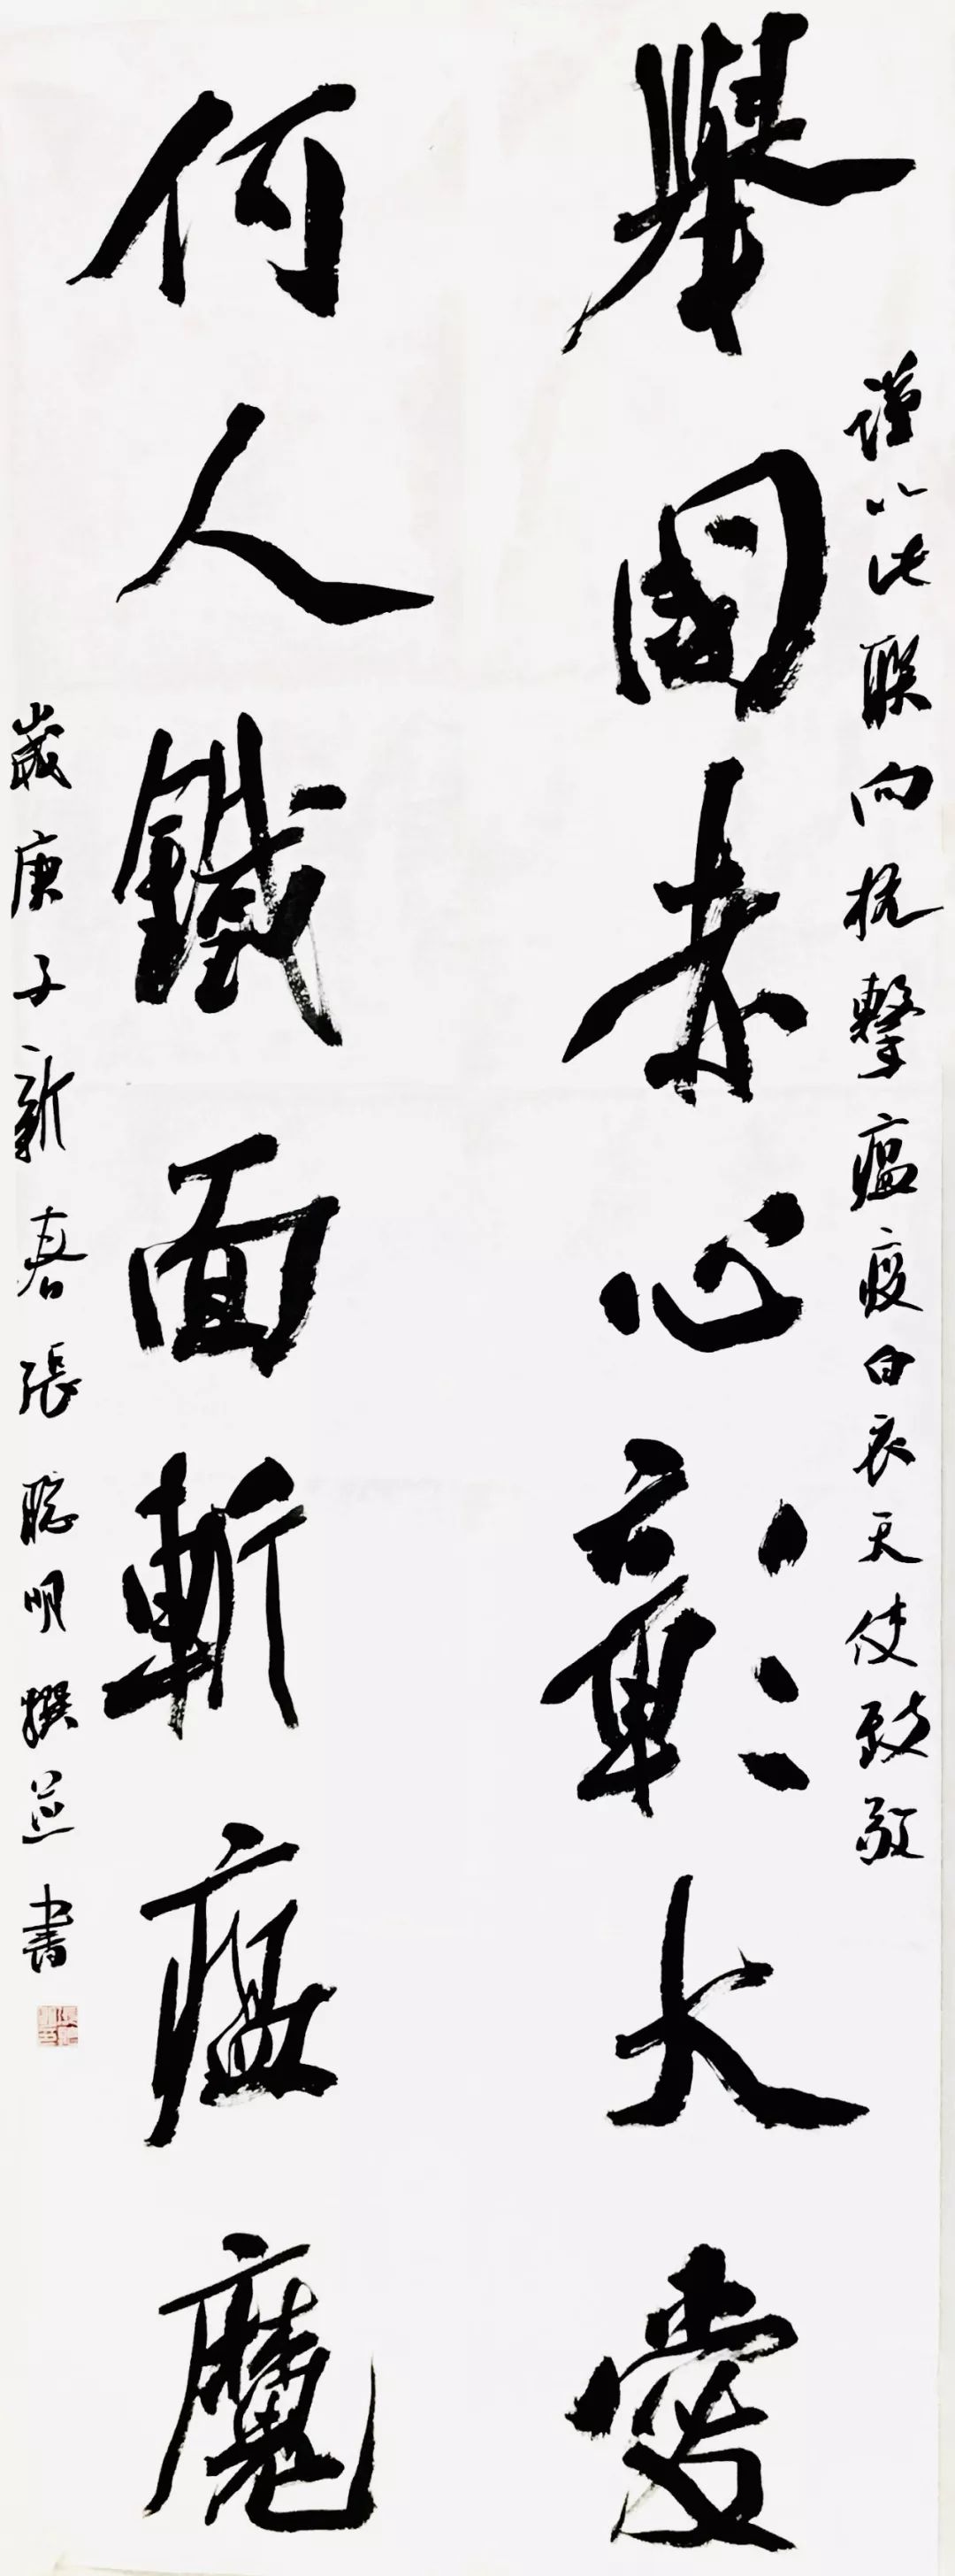 謹以此联向抗擊瘟疫白衣天使致敬
舉國赤心彰大愛
何人鐵面斬瘟魔
歲庚子新春張聰明撰並書